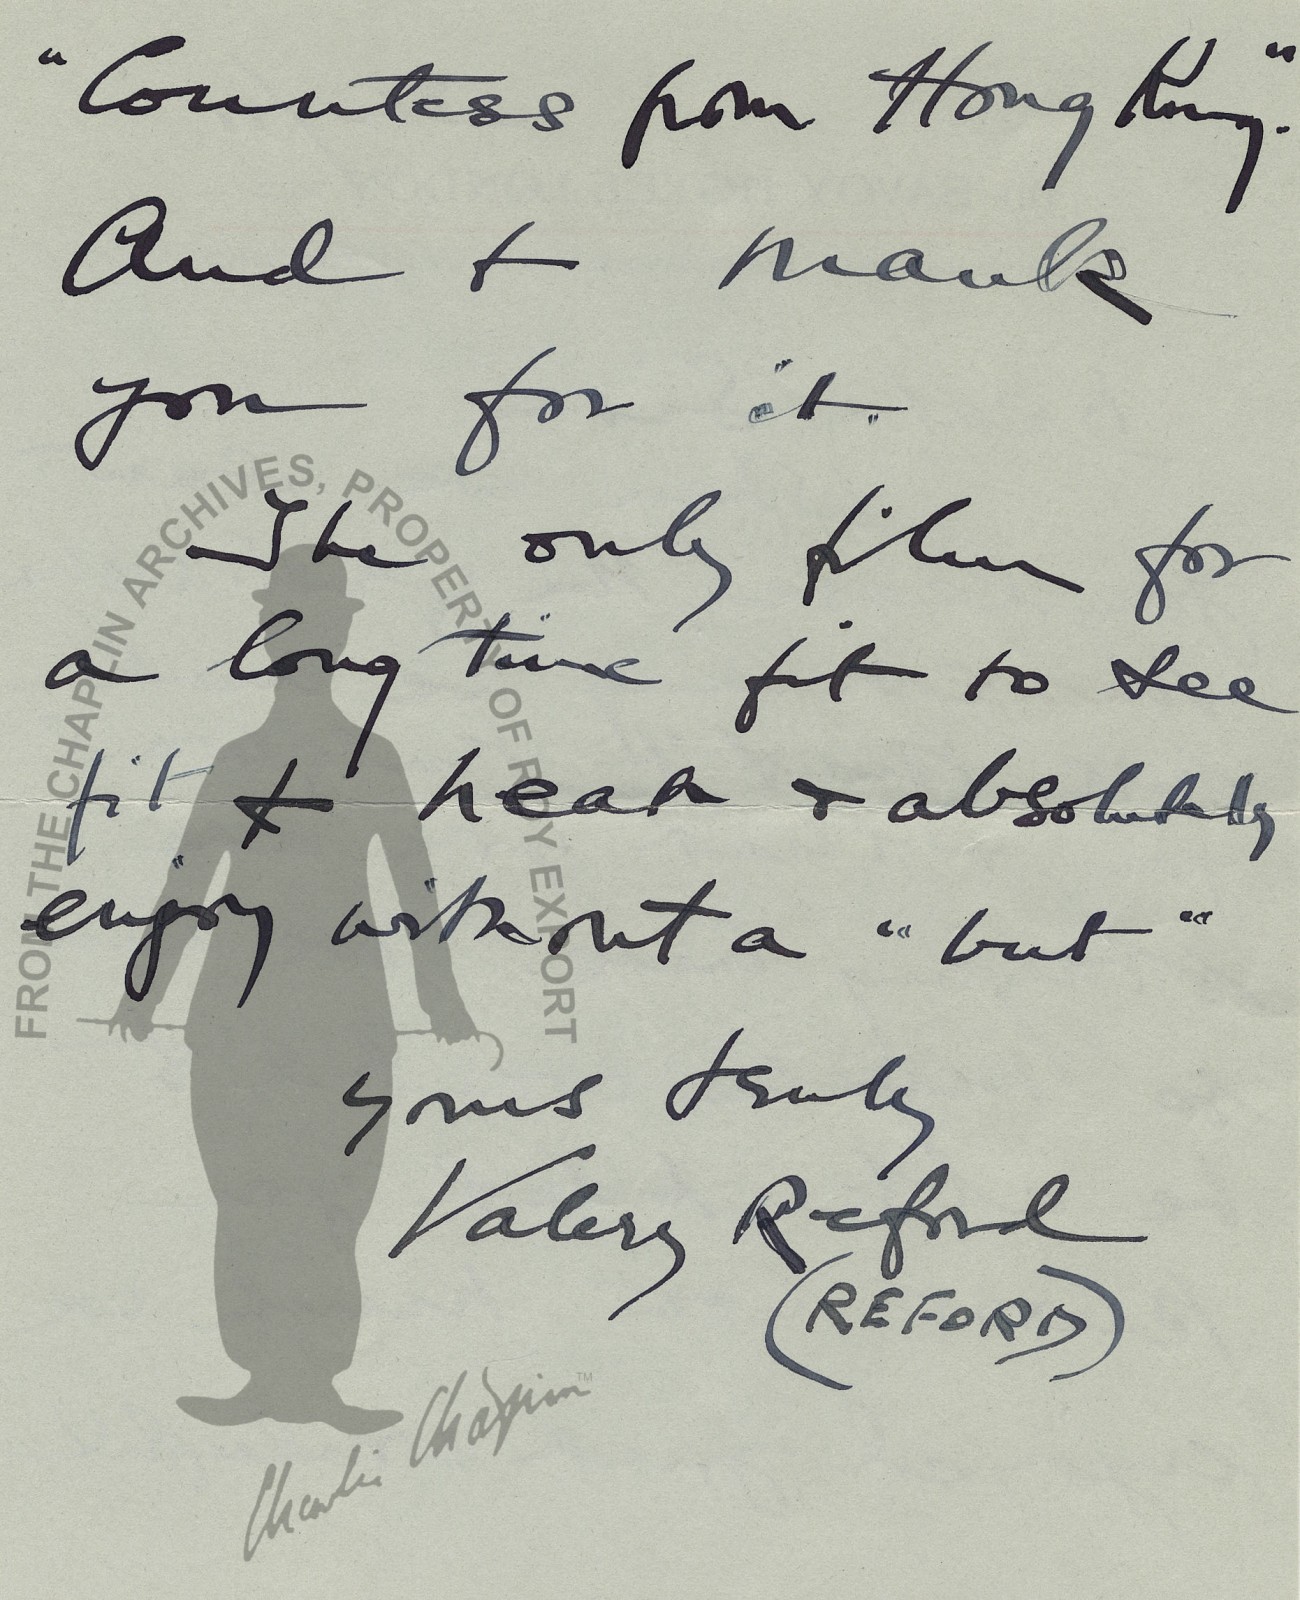 "Countess from Hong Kong".
And to thank
you for it.
The only film for
a long time fit to see
fit to hear & absolutely
enjoy without a "but"
yours truly
Valery Reford
(REFORD)
FROM THE CHAPLIN ARCHIVES, PROPERTY OF ROY EXPORT
Charlie Chaplin™